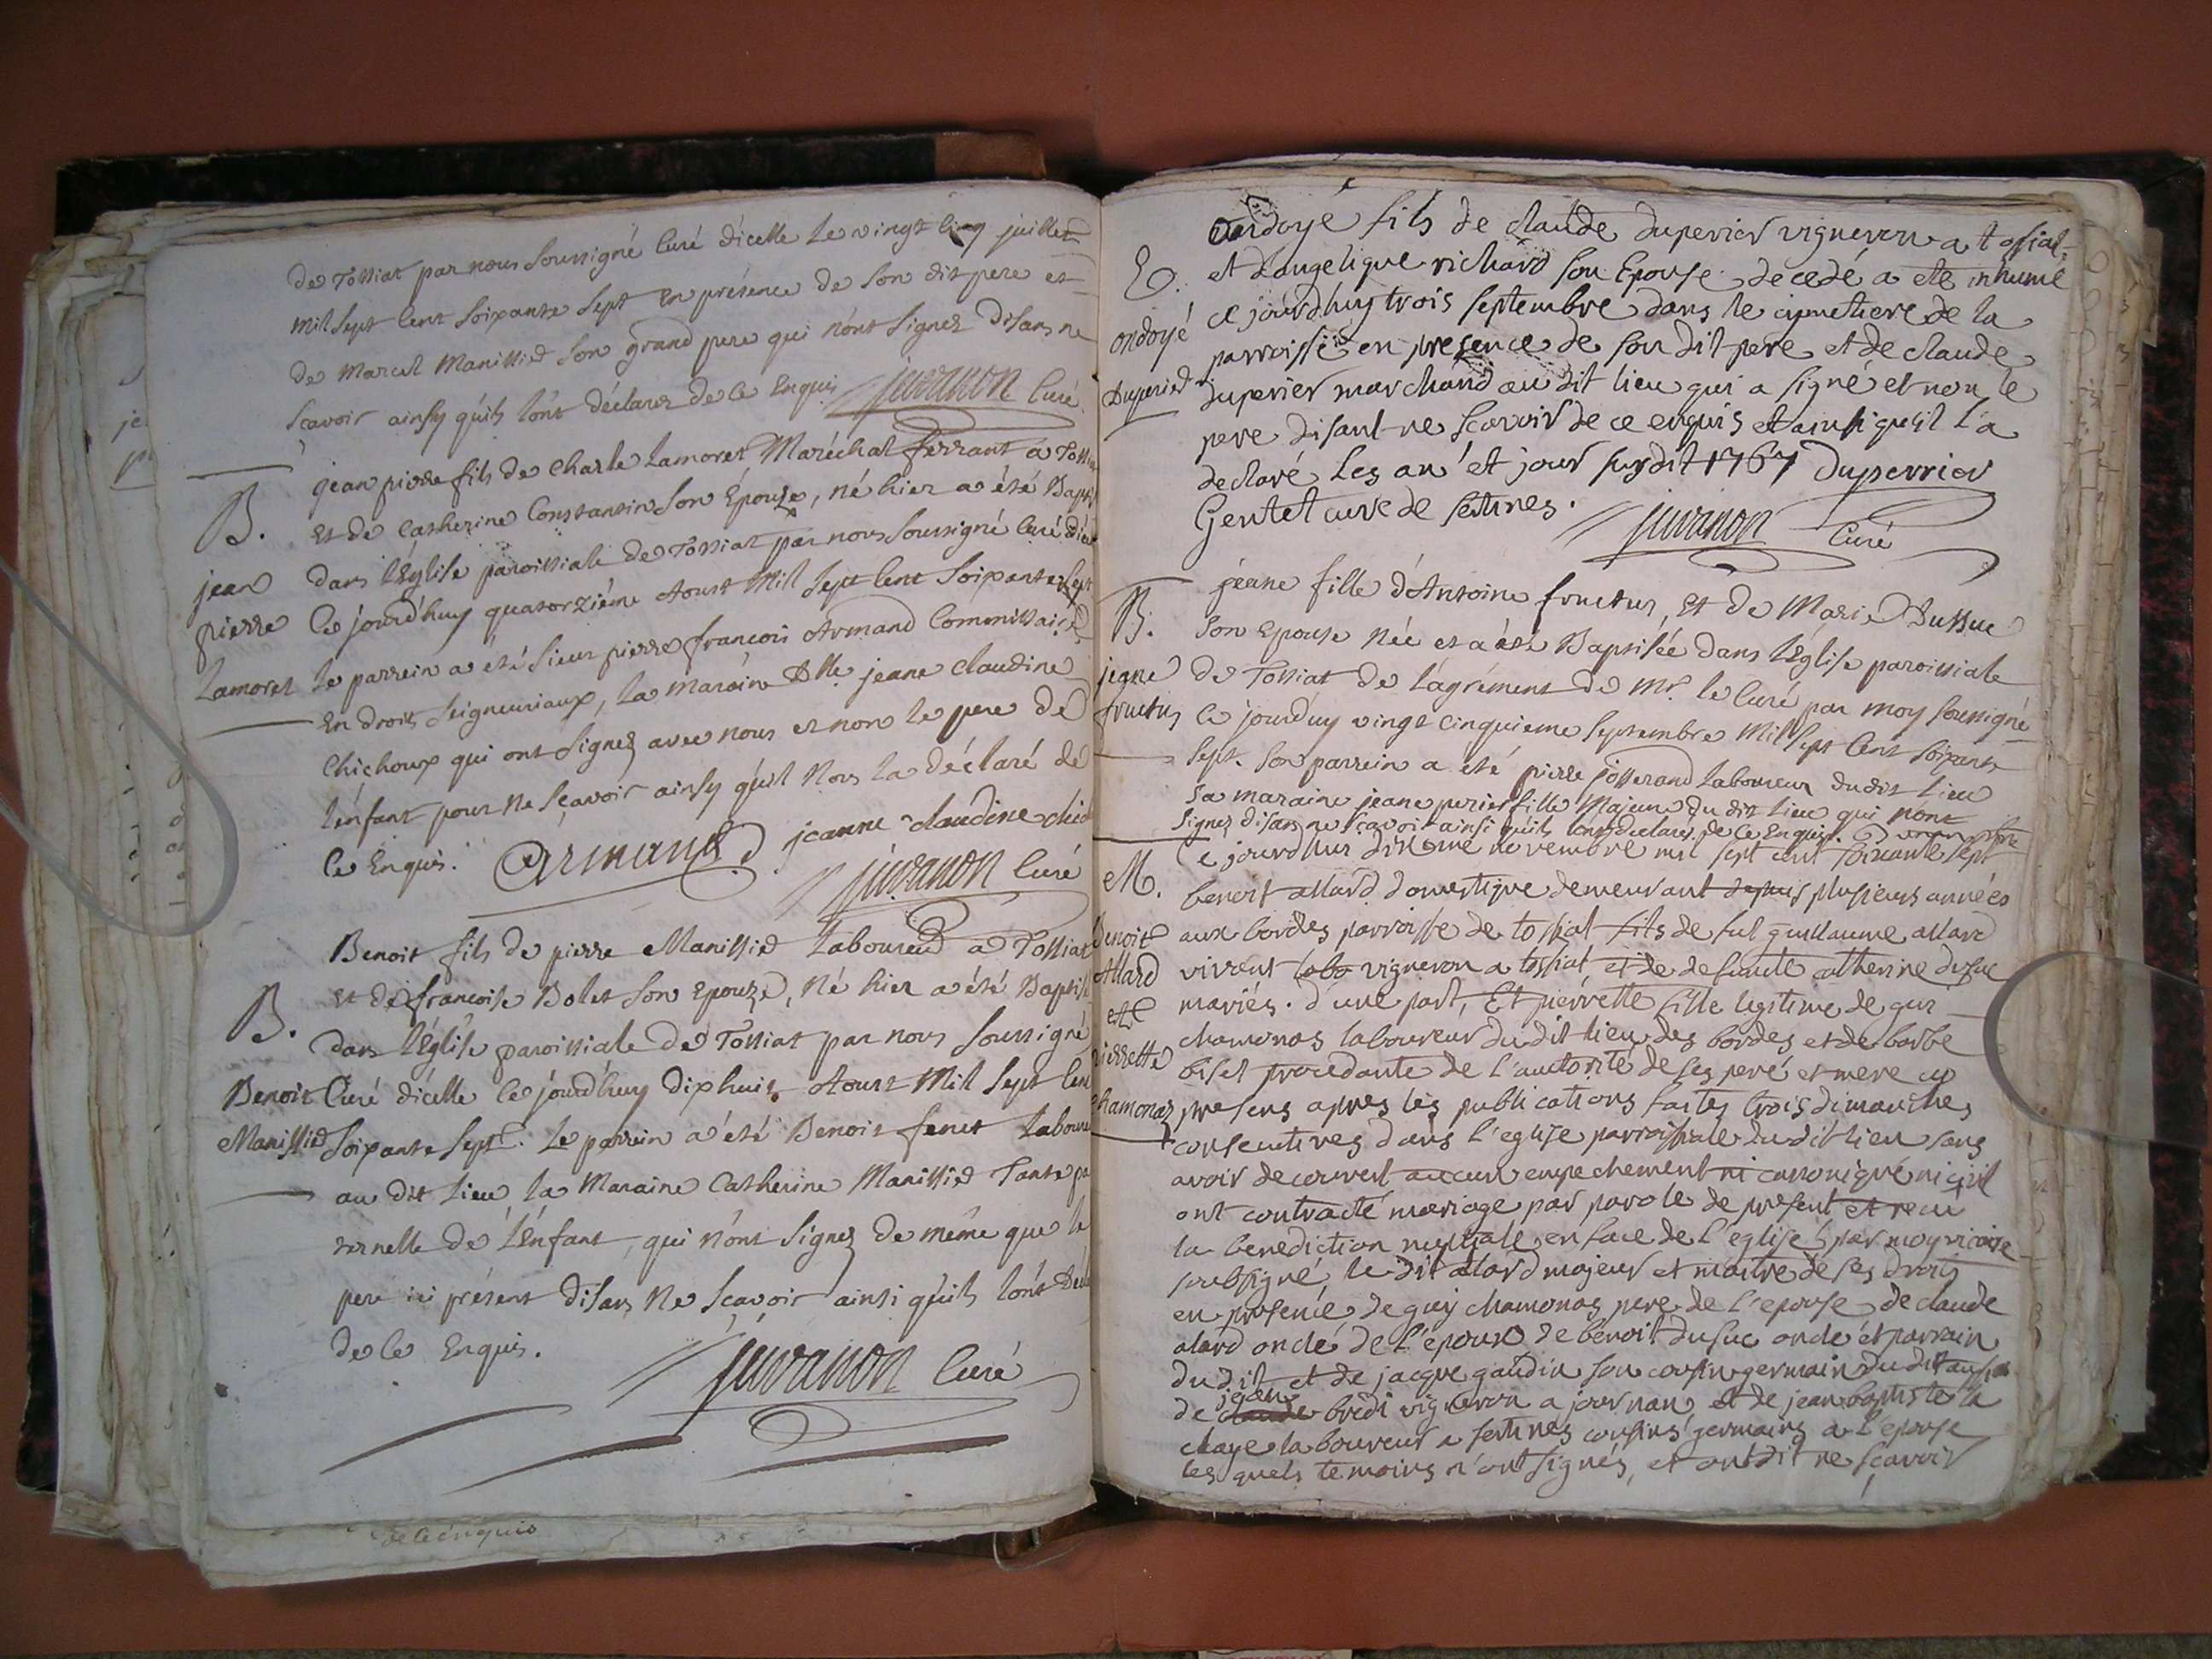 de Tossiat par nous soussigné Curé d'icelle Le vingt cinq juillet
mil sept cent soixante sept en présence de son dit pere et
de Marcel Manissied son grand pere qui n'ont signez disans ne
scavoir ainsy qu'ils l'ont déclarez de ce Enquis juvanon Curé
B.
jean
pierre
Lamoret
jean pierre fils de Charle Lamoret Maréchal ferrant a
Et de Catherine Constantin son Epouze, né hier a été
dans l'Eglise paroissiale de Tossiat par nous soussigné Curé
Ce jourd'huy quatorzième Aoust Mil sept cent soixante sept
le parrein a été sieur pierre francois Armand Commissaire
en droits seigneuriaux, la maraine Dlle jeane claudine
Chichoux qui ont signez avec nous et non le pere de
l'énfant pour ne sçavoir ainsy qu'il nous la déclaré de
ce Enquis. Armand jeanne claudine
juvanon Curé
B.
Benoit
Manissied
Benoit fils de pierre Manissied Laboureur a Tossiat
et de francoise Bolet son Epouze, né hier a été
dans l'Eglise paroissiale de Tossiat par nous soussigné
Curé d'icelle ce jourd'huy dixhuit Aoust Mil sept
soixante sept. Le parrein a été Benoit feret
au dit Lieu, la Maraine Catherine Manissied Tante
ternelle de l'énfant, qui n'ont signez de même que le
pere ici présent disans ne scavoir ainsi qu'ils l'ont
de ce Enquis.
juvanon Curé
de ce enquis
E.
ondoyé
Duperier
ondoyé fils de claude duperier vigneron a tossiat
et d'angelique richard son Epouse decedé a eté inhumé
ce jourdhuy trois septembre dans le cimetiere de la
parroisse en presence de son dit pere et de claude
duperier marchand au dit lieu qui a signé et non le
pere disant ne scavoir de ce enquis et ainsi qu'il l'a
declaré Les an et jour susdit 1767 Duperrier
Gentet curé de
juvanon Curé
B.
jeane
fructus
jeane fille d'Antoine fructus, et de Marie Dussuc
son epouse née et a été Baptisée dans l'Eglise paroissiale
de Tossiat de l'agrément de Mr. le Curé par moy soussigné
ce jourduy vingt cinquieme septembre Mil sept cent soixante
sept. son parrein a eté pierre josserand laboureur dudit Lieu
sa maraine jeane perier fille Majeure du dit Lieu qui n'ont
signez disans ne scavoir ainsi qu'ils l'ont declarez de ce Enquis.
M.
Benoit
Allard
et
pierrette
Chamonaz
Ce jourdhui dixieme novembre mil sept cent soixante sept
benoit allard domestique demeurant depuis plusieurs années
aux bordes parroisse de tossiat fils de fut guillaume allard
vivent vigneron a tossiat, et de defuncte catherine dusuc
mariés. d'une part, Et pierrette fille legitime de gui
chamonas laboureur du dit lieu des bordes et de barbe
biset procedante de l'auctorité de ses peré et mere cy
presens apres les publications faites trois dimanches
consecutives dans l'eglise parroissiale du dit lieu sans
avoir decouvert aucun empechement ni canonique ni civil
ont contracté mariage par parole de present et recu
la benediction nuptiale en face de l'eglise par moy vicaire
soubsigné, le dit allard majeur et maitre de ses droits
en presence de guy chamonas pere de l'epouse de claude
alard oncle de l'epoux de benoit dusuc oncle et parrain
du dit et de jacque gaudin son cousin germain du dit aussi
de claude jean bredi vigneron a journan et de jean baptiste la
chaye laboureur a cousins germains a l'epouse
les quels temoins n'ont signés, et ont dit ne scavoir